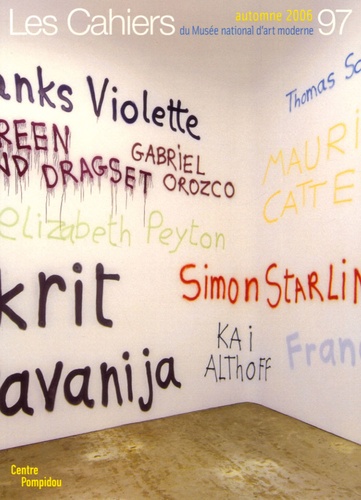 Les Cahiers
automne 2006
du Musée national d'art moderne 97
anks Violette
REEN
ND DRAGSET
GABRIEL
OROZCO
Thomas Sc
MAURI
CATTE
elizabeth Peyton
krit
avanija
Simon STARLIN
KAi
ALTHOFF
Fran
Centre
Pompidou